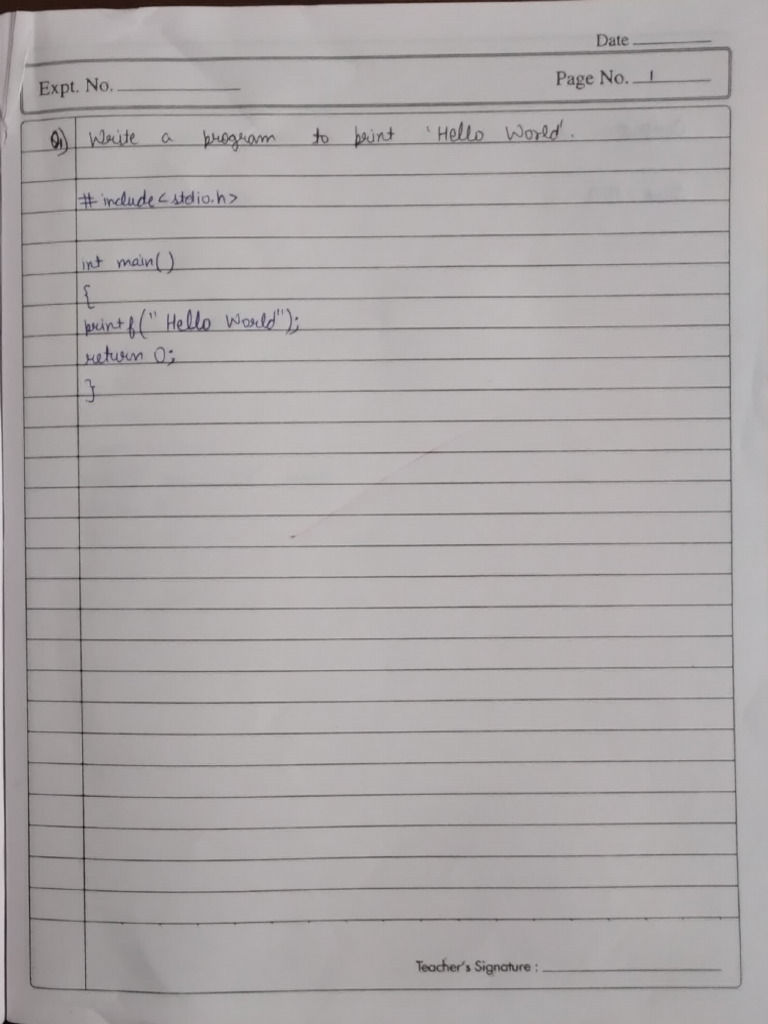 Date
Expt. No.
Page No. 1
Q1) Write a program to print 'Hello World'.
#include<stdio.h>
int main()
{
printf(" Hello World");
return 0;
}
Teacher's Signature :